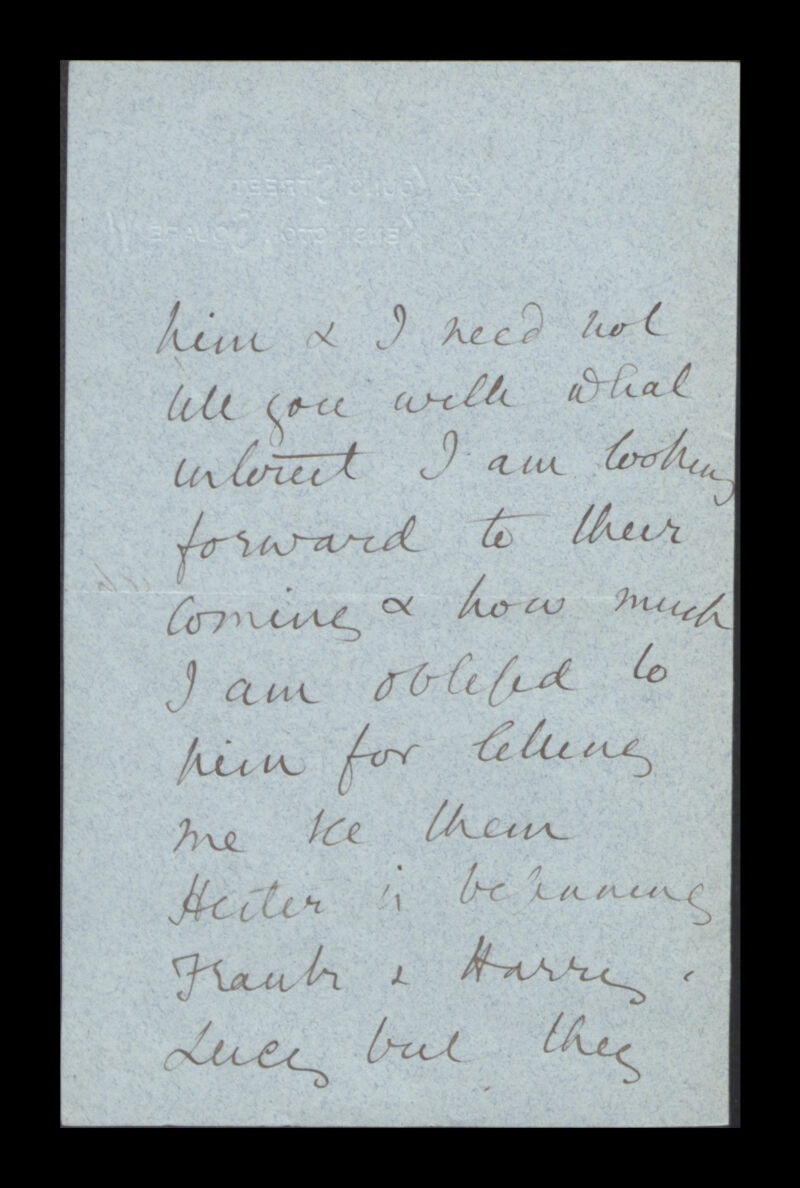 him & I need not
tell you with what
interest I am looking
forward to their
coming & how much
I am obliged to
him for letting
me see them
Hester is beginning
Frank & Harry &
Lucy but they